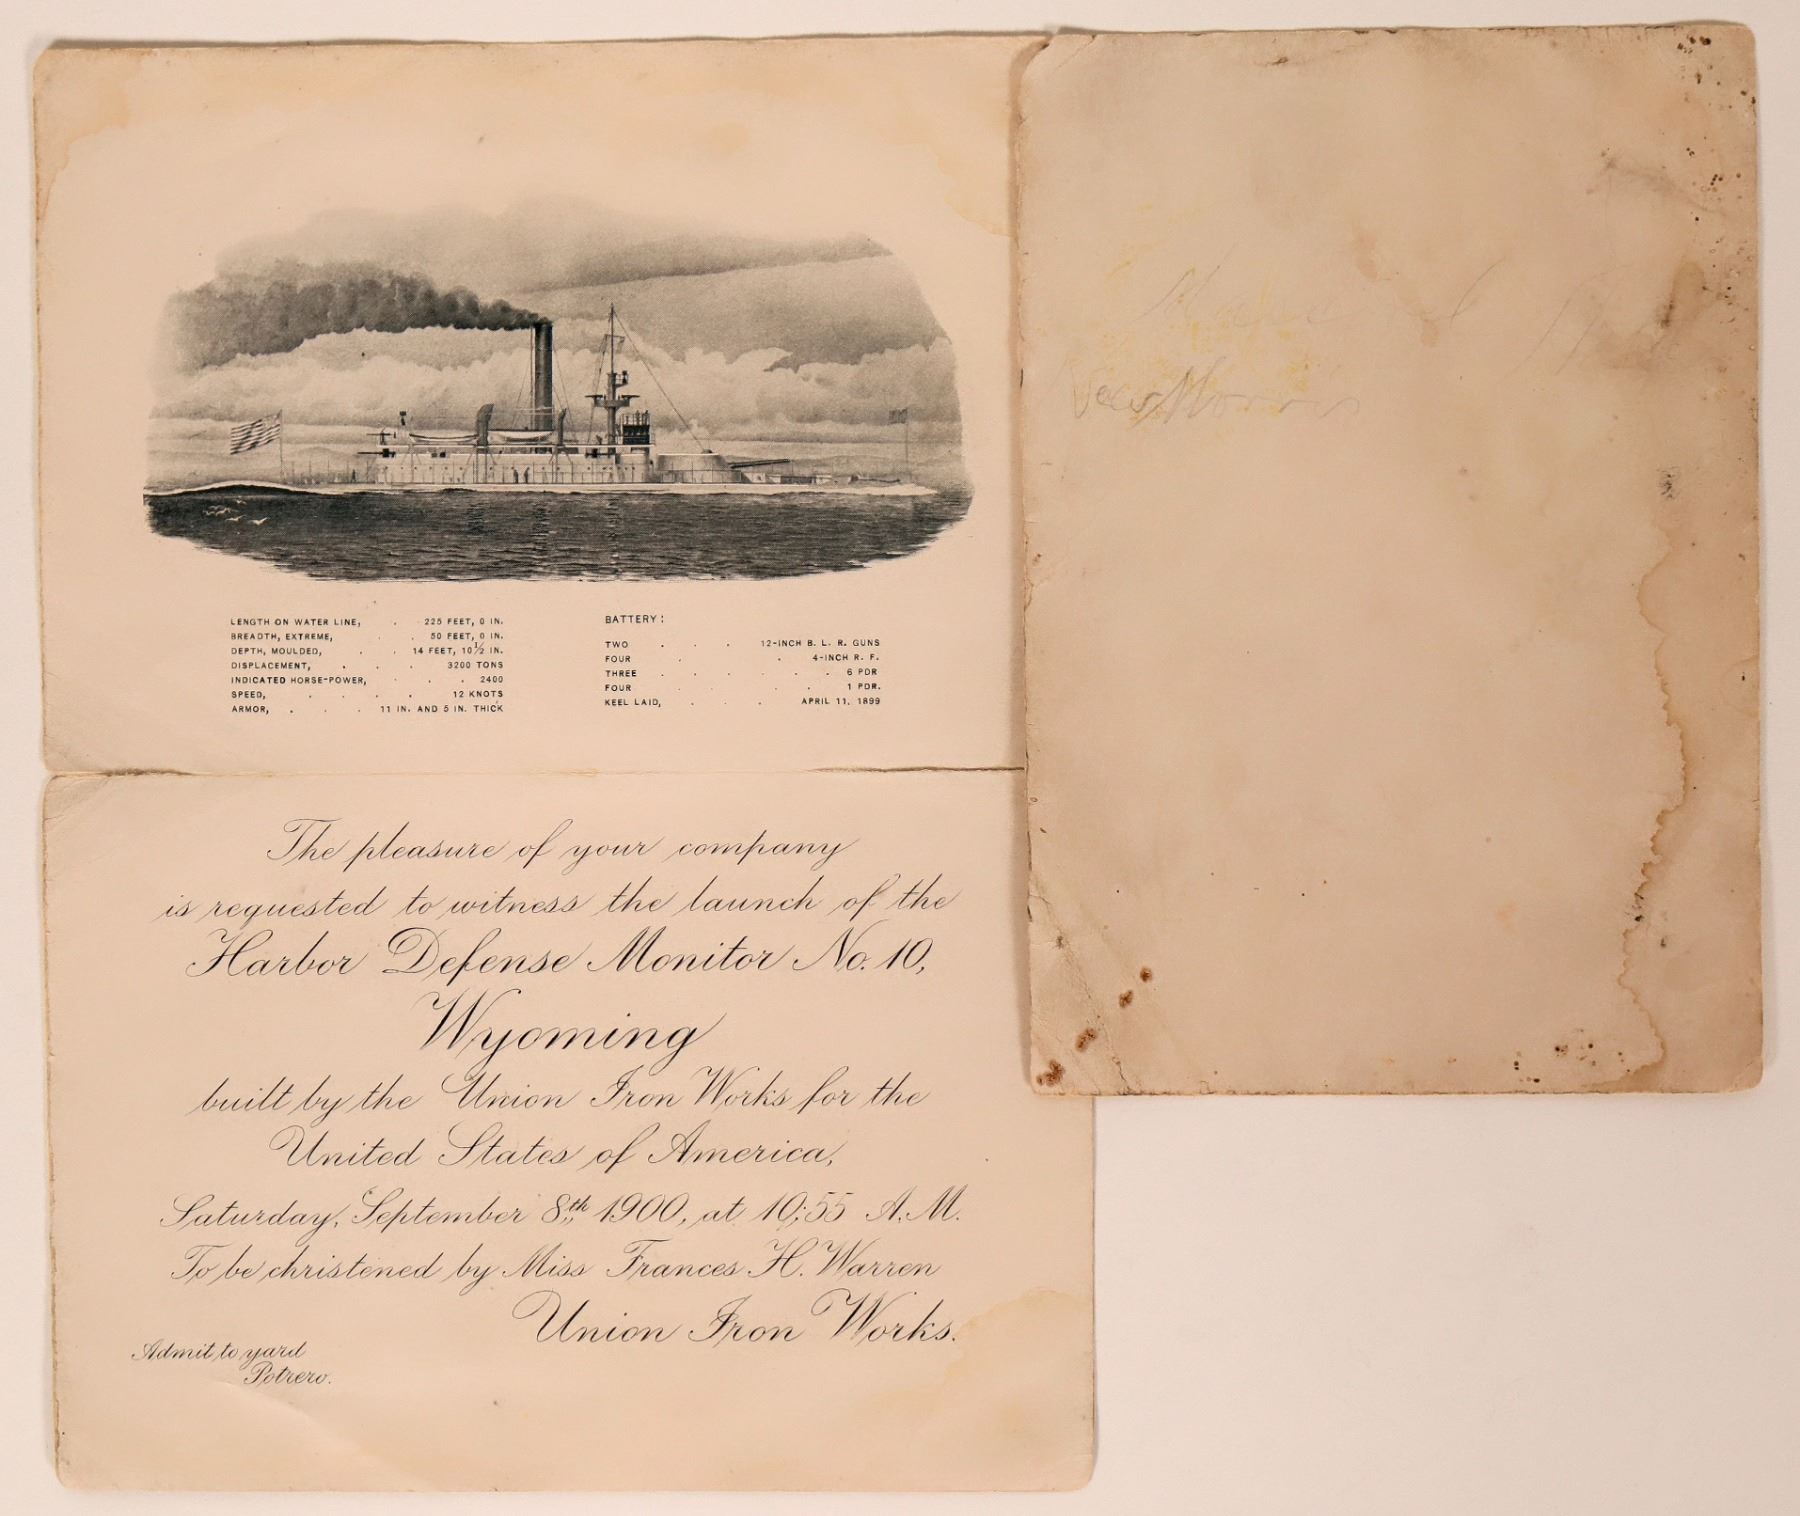 LENGTH ON WATER LINE, . 225 FEET, 0 IN.
BREADTH, EXTREME, . . 50 FEET, 0 IN.
DEPTH, MOULDED, . . 14 FEET, 10½ IN.
DISPLACEMENT, . . . 3200 TONS
INDICATED HORSE-POWER, . . . 2400
SPEED, . . . . 12 KNOTS
ARMOR, . . . 11 IN. AND 5 IN. THICK
BATTERY:
TWO . . . 12-INCH B. L. R. GUNS
FOUR . . 4-INCH R. F.
THREE . . . . . 6 PDR
FOUR . . . . 1 PDR.
KEEL LAID, . . . APRIL 11, 1899
The pleasure of your company
is requested to witness the launch of the
Harbor Defense Monitor No. 10,
Wyoming
built by the Union Iron Works for the
United States of America,
Saturday, September 8th 1900, at 10:55 A.M.
To be christened by Miss Frances H. Warren
Union Iron Works.
Admit to yard
Potrero.
Morris